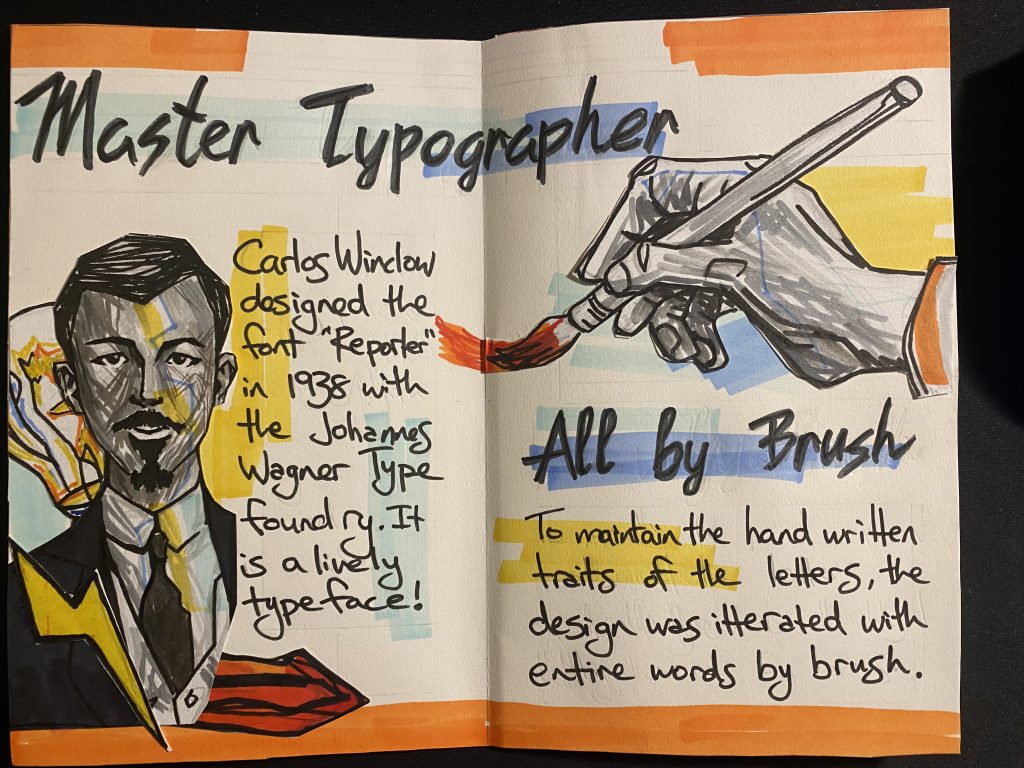 Master Typographer
Carlos Winclow
designed the
font "Reporter"
in 1938 with
the Johannes
Wagner Type
foundry. It
is a lively
typeface!
All by Brush
To maintain the hand written
traits of the letters, the
design was itterated with
entire words by brush.